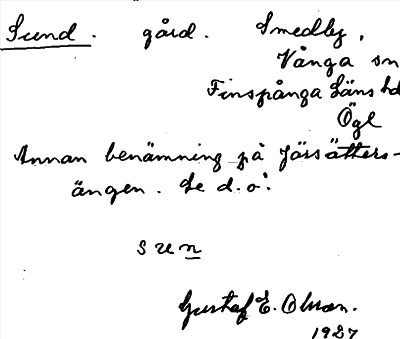 Sund. gård. Smedby,
Vånga sn
Finspånga läns hd
Ögl
Annan benämning på Jörsätters-
ängen. Se d.o!
sun
Gustaf E. Olsson.
1927